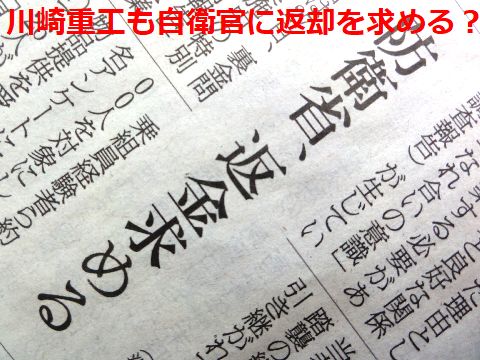 川崎重工も自衛官に返却を求める？
防衛省、返金求める
た理由とし
と良好な関係
する必要があ
なれ合いの意識
が生じてい
調査報告）
踏襲の
引き継がれ
裏金問
特別
乗組員経験者ら約
００人を対象にし
名アンケートに
品提供を受